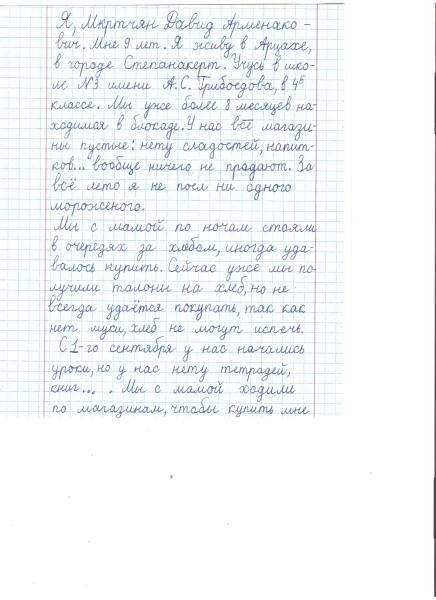 Я, Мкртчян Давид Арменако-
вич. Мне 9 лет. Я живу в Арцахе,
в городе Степанакерт. Учусь в шко-
ле №3 имени А.С. Грибоедова, в 4б
классе. Мы уже более 8 месяцев на-
ходимся в блокаде. У нас всё магази-
ны пустые: нету сладостей, напит-
ков... вообще ничего не продают. За
всё лето я не поел ни одного
мороженого.
Мы с мамой по ночам стояли
в очередях за хлебом, иногда уда-
валось купить. Сейчас уже мы по
лучили талоны на хлеб, но не
всегда удаётся покупать, так как
нет муки, хлеб не могут испечь.
С 1-го сентября у нас начались
уроки, но у нас нету тетрадей,
книг... . Мы с мамой ходили
по магазинам, чтобы купить мне